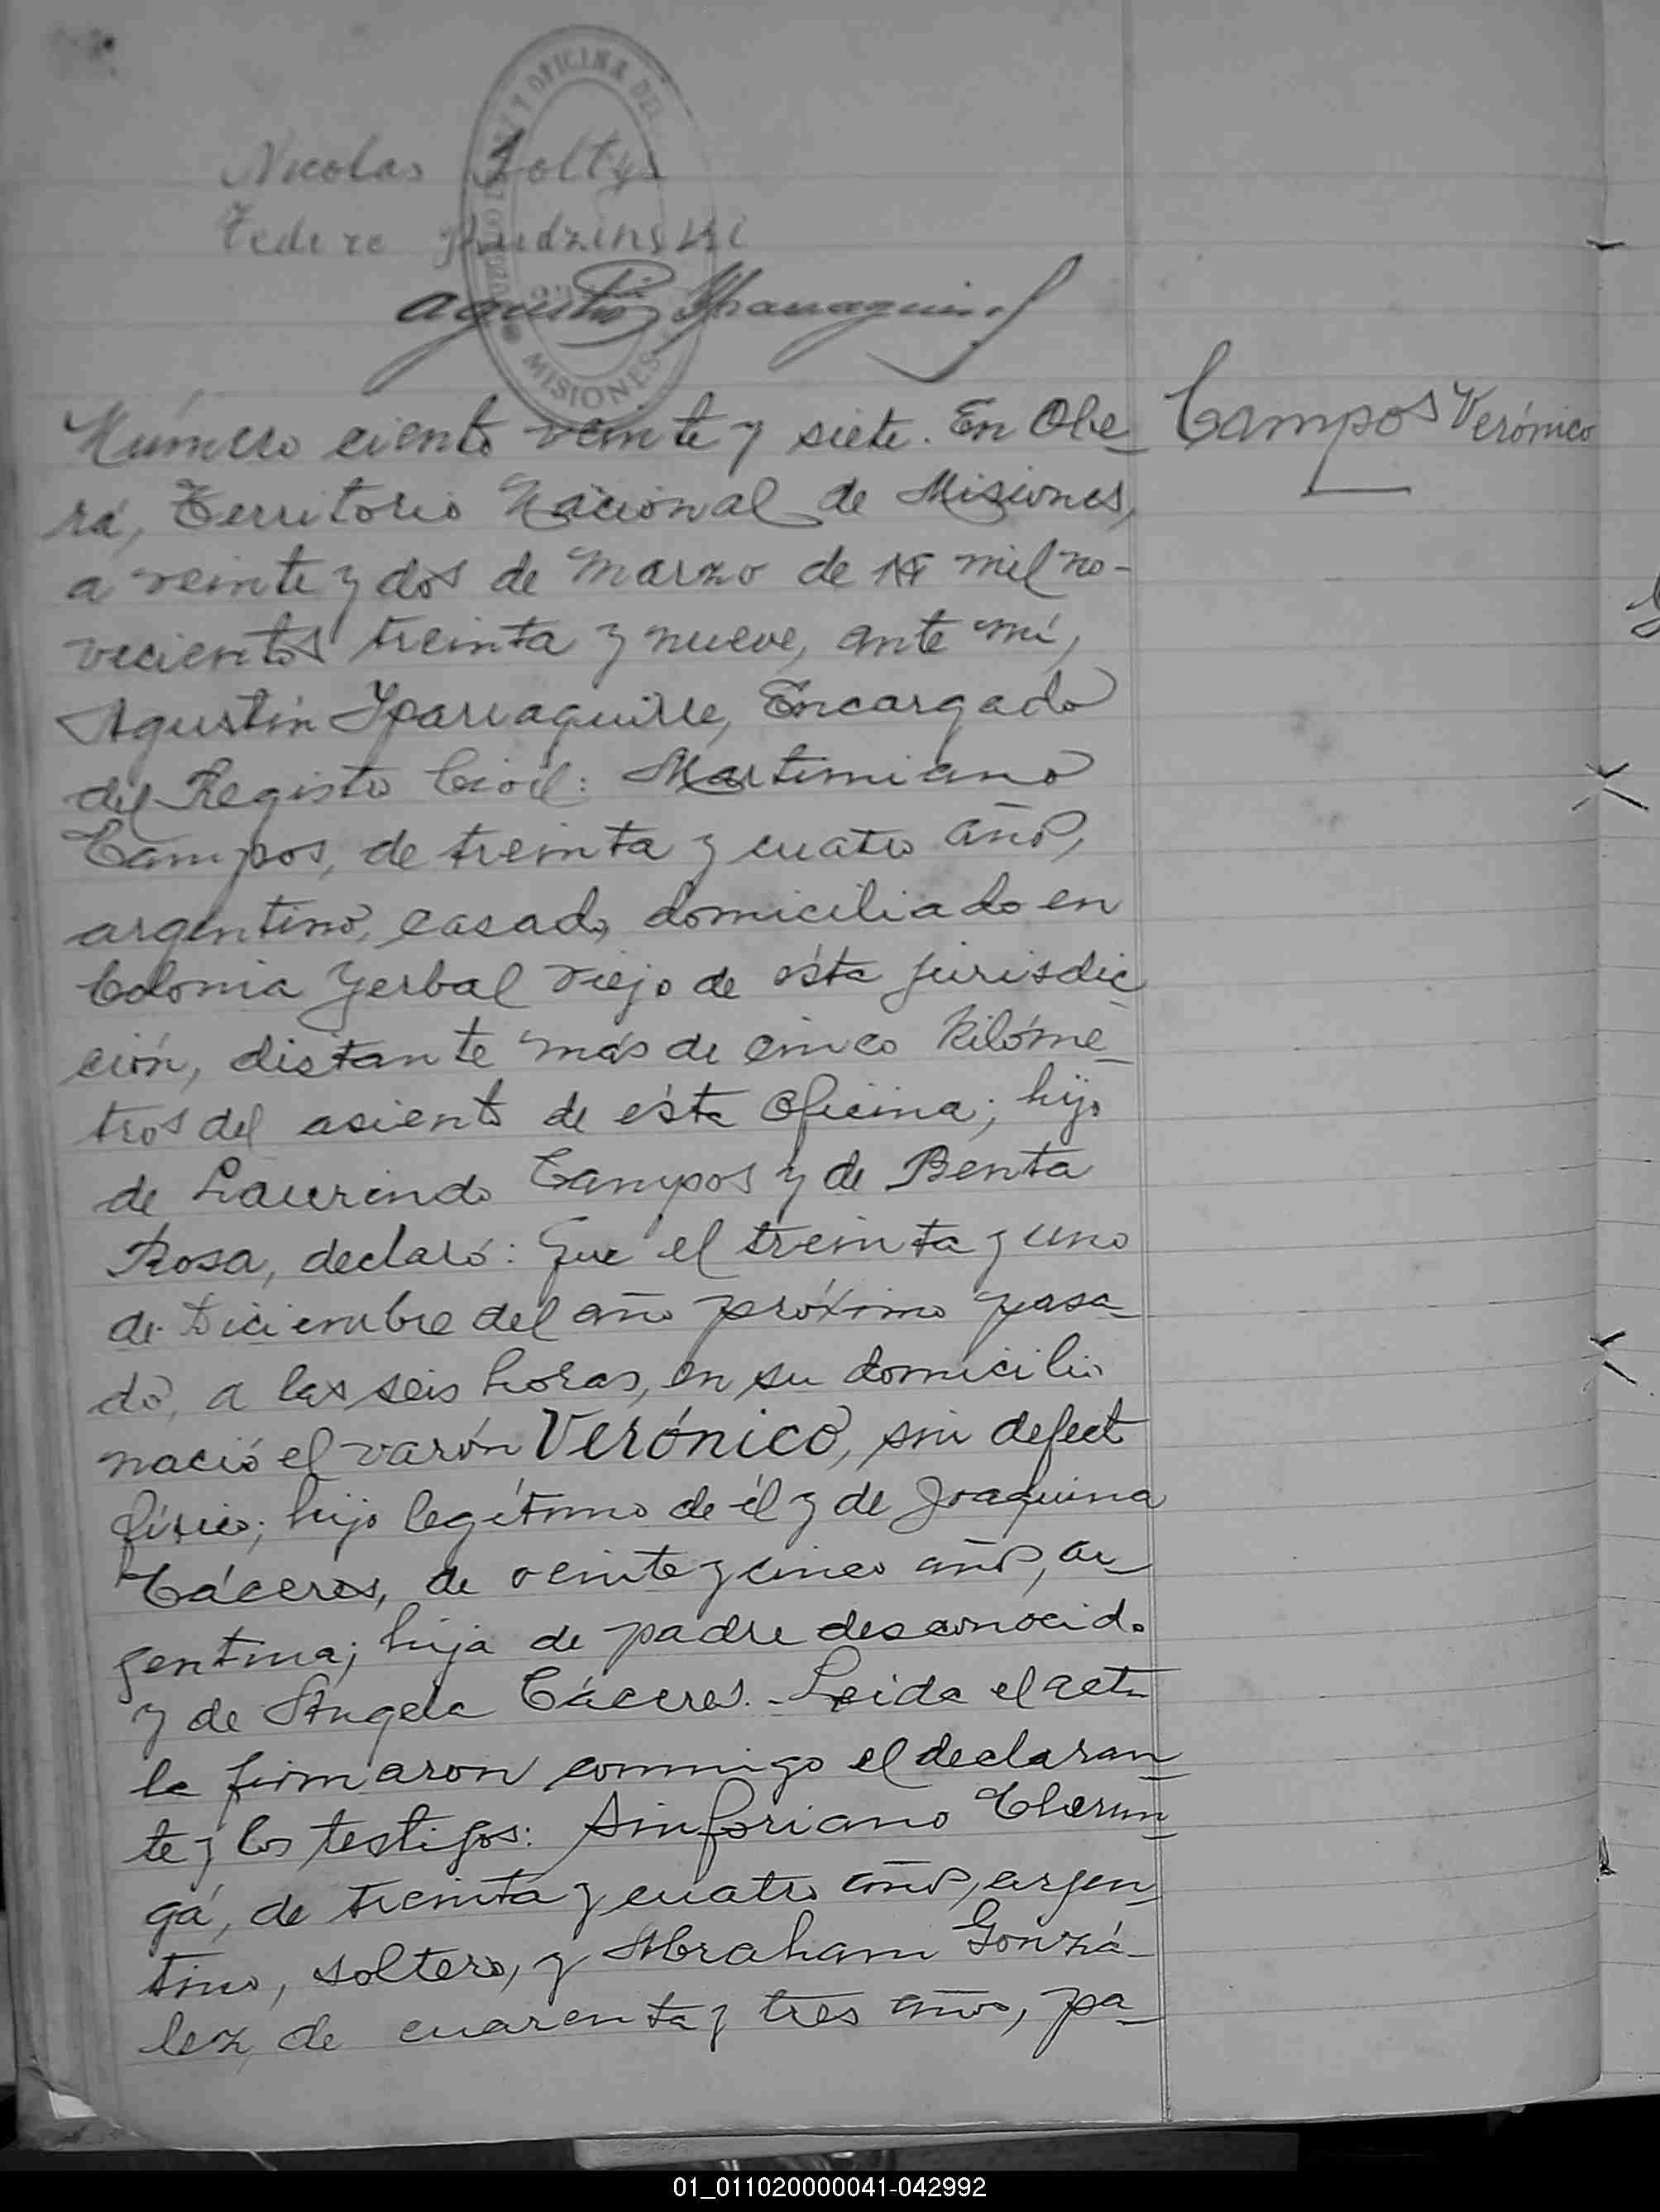 Nicolas Zoltys
OFICINA DEL
MISIONES
Número ciento veinte y siete. En Obe-
Campos Verónico
rá, Territorio Nacional de Misiones,
a veinte y dos de Marzo de mil no-
vecientos treinta y nueve, ante mí,
Agustín Yparraguirre, Encargado
del Registo Civil: Martimiano
Campos, de treinta y cuatro años,
argentino, casado, domiciliado en
Colonia Yerbal Viejo de ésta jurisdic
ción, distante más de cinco kilóme-
tros del asiento de ésta Oficina; hijo
de Laurindo Campos y de Benta
Rosa, declaró: Que el treinta y uno
de Diciembre del año próximo pasa-
do, a las seis horas, en su domicilio
nació el varón Verónico, sin defecto
físico; hijo legítimo de él y de Joaquina
Cáceres, de veinte y cinco años, ar-
gentina; hija de padre desconocido
y de Angela Cáceres. - Leida el acta
la firmaron conmigo el declaran-
te y los testigos: Sinforiano Cherun-
gá, de treinta y cuatro años, argen-
tino, soltero, y Abraham Gonzá-
lez, de cuarenta y tres años, pa-
01_011020000041-042992